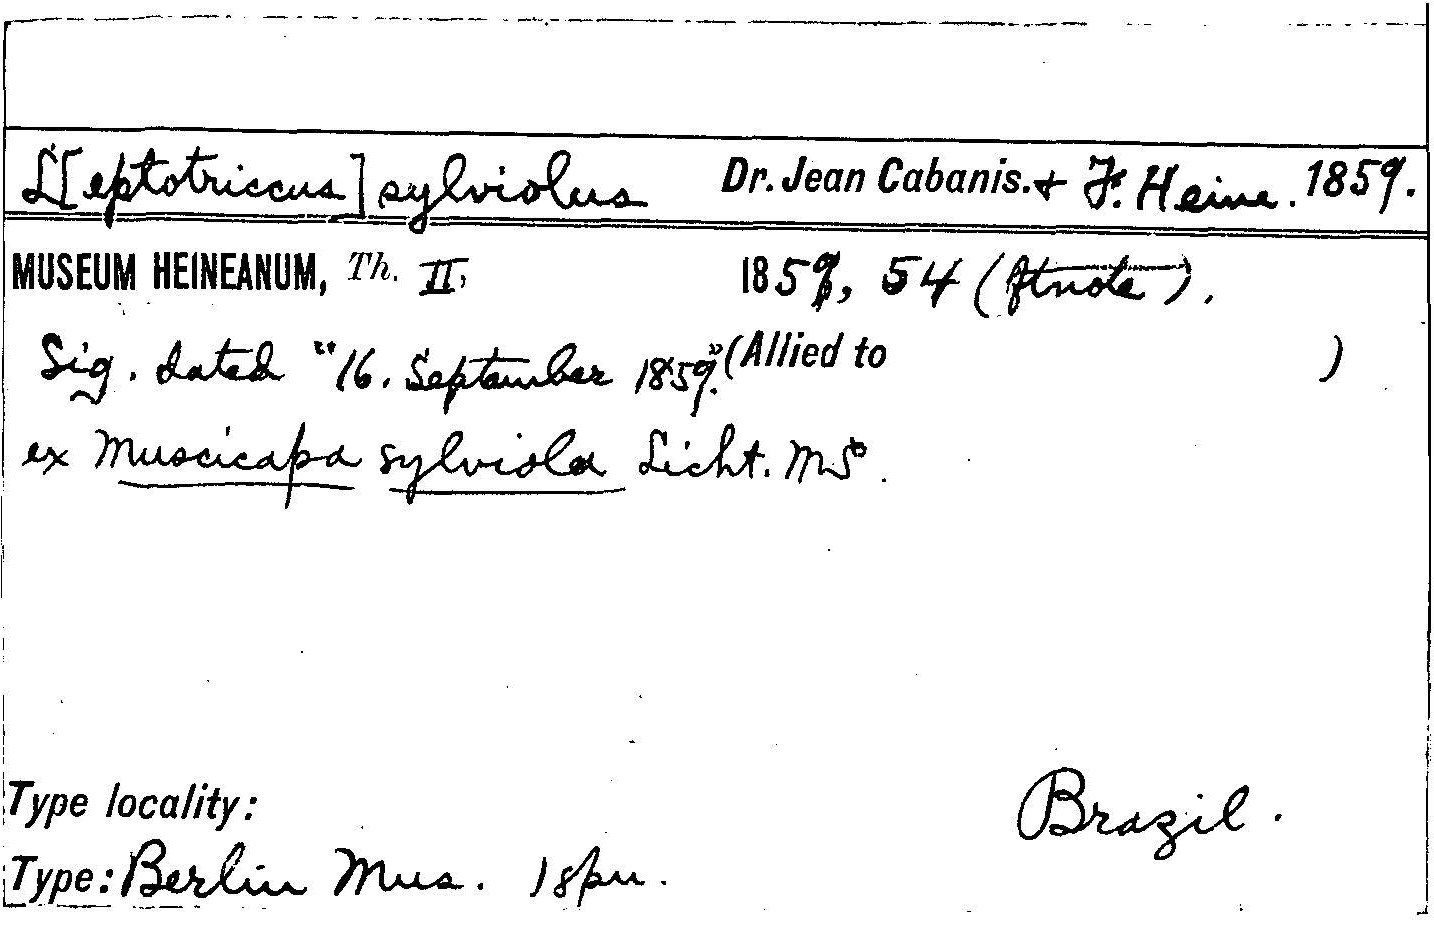 L[eptotriccus] sylviolus Dr. Jean Cabanis. + F. Heine. 1859.
MUSEUM HEINEANUM, Th. II, 1859, 54 (ftnote).
Sig. dated "16. September 1859." (Allied to )
ex Muscicapa sylviola Licht. MS.
Type locality: Brazil.
Type: Berlin Mus. 1 spn.